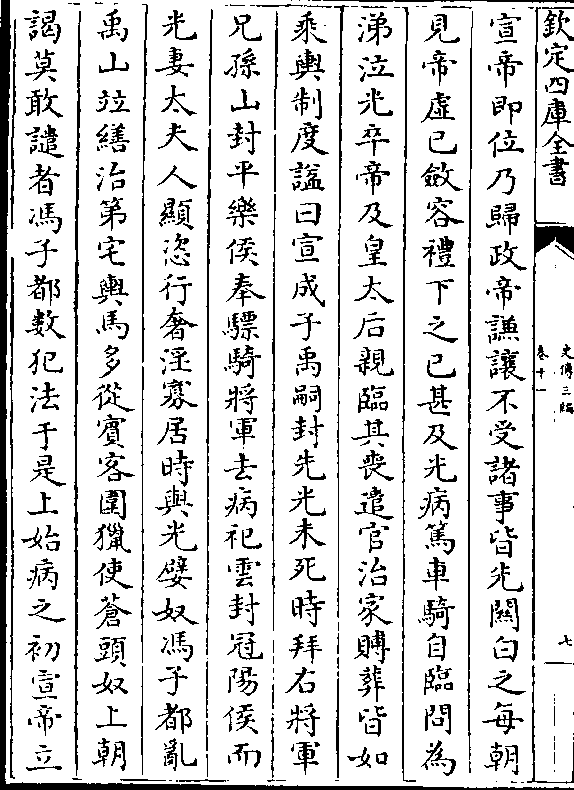 欽定四庫全書
史傳三編
卷十一
七
宣帝即位乃歸政帝謙讓不受諸事皆先關白之每朝
見帝虛已斂容禮下之已甚及光病篤車騎自臨問為
涕泣光卒帝及皇太后親臨其喪遣官治冢賻葬皆如
乘輿制度諡曰宣成子禹嗣封先光未死時拜右將軍
兄孫山封平樂侯奉驃騎將軍去病祀雲封冠陽侯而
光妻太夫人顯恣行奢淫寡居時與光嬖奴馮子都亂
禹山竝繕治第宅輿馬多從賓客圍獵使蒼頭奴上朝
謁莫敢譴者馮子都數犯法于是上始病之初宣帝立